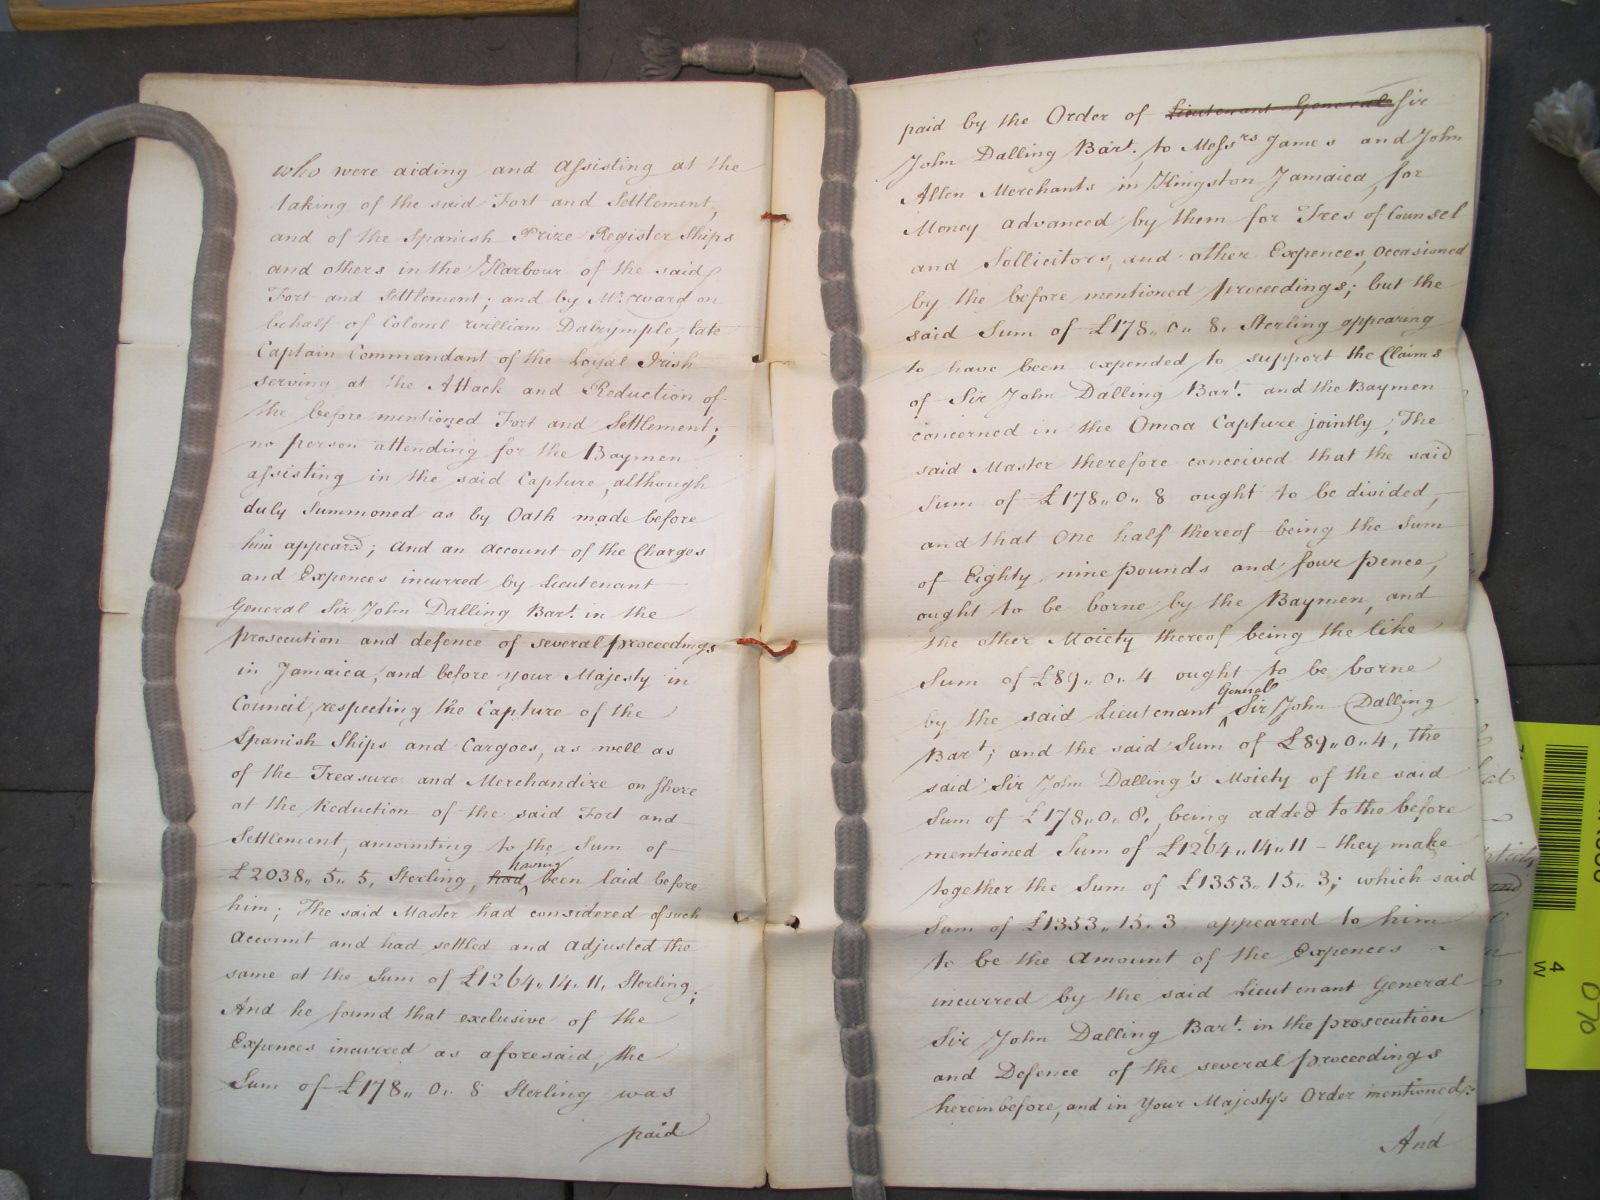 who were aiding and assisting at the
taking of the said Fort and Settlement,
and of the Spanish Prize Register Ships
and others in the Harbour of the said
Fort and Settlement; and by Mr. Ward on
behalf of Colonel William Dalrymple, late
Captain Commandant of the Loyal Irish
serving at the Attack and Reduction of
the before mentioned Fort and Settlement;
no person attending for the Baymen
assisting in the said Capture, although
duly Summoned as by Oath made before
him appeard; And an Account of the Charges
and Expences incurred by Lieutenant
General Sir John Dalling Bart. in the
prosecution and defence of several proceedings
in Jamaica, and before your Majesty in
Council, respecting the Capture of the
Spanish Ships and Cargoes, as well as
of the Treasure and Merchandize on Shore
at the Reduction of the said Fort and
Settlement, amounting to the Sum of
£2038,, 5,, 5, Sterling, had having been laid before
him; The said Master had considered of such
Account and had settled and adjusted the
same at the Sum of £1264,, 14,, 11, Sterling;
And he found that exclusive of the
Expences incurred as aforesaid, the
Sum of £178,, 0,, 8 Sterling was
paid
paid by the Order of Lieutenant General Sir
John Dalling Bart. to Messrs James and John
Allen Merchants in Kingston Jamaica, for
Money advanced by them for Fees of Counsel
and Sollicitors, and other Expences, occasioned
by the before mentioned proceedings; but the
said Sum of £178,, 0,, 8, Sterling appearing
to have been expended to support the Claims
of Sir John Dalling Bart. and the Baymen
concerned in the Omoa Capture jointly; The
said Master therefore conceived that the said
Sum of £178,, 0,, 8 ought to be divided,
and that One half thereof being the Sum
of Eighty nine pounds and four pence,
ought to be borne by the Baymen, and
the other Moiety thereof being the like
Sum of £89,, 0,, 4 ought to be borne
by the said Lieutenant General Sir John Dalling
Bart; and the said Sum of £89,, 0,, 4, the
said Sir John Dalling's Moiety of the said
Sum of £178,, 0,, 8, being added to the before
mentioned Sum of £1264,, 14,, 11 - they make
together the Sum of £1353,, 15,, 3; which said
Sum of £1353,, 15,, 3 appeared to him
to be the Amount of the Expences
incurred by the said Lieutenant General
Sir John Dalling Bart. in the prosecution
and Defence of the several proceedings
hereinbefore, and in Your Majesty's Order mentioned:
And
4
W
070